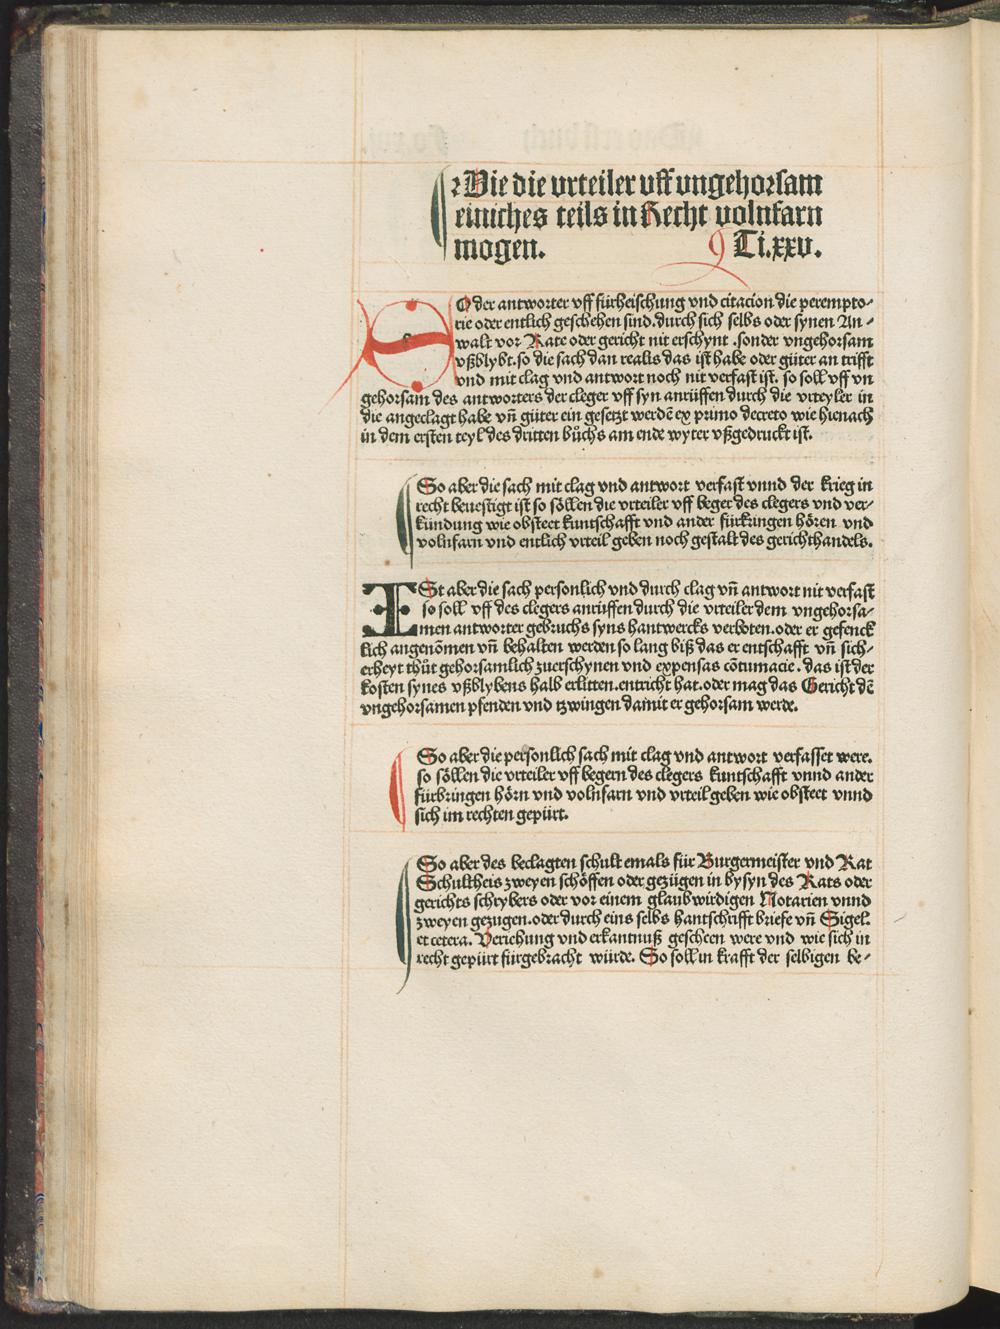 Wie die vrteiler vff vngehorsam
einiches teils in Recht volnfarn
mogen. Ti.xxv.
SO der antworter vff fürheischung vnd citacion die perempto-
rie oder entlich geschehen sind.durch sich selbs oder synen An-
walt vor Rate oder gericht nit erschynt .sonder vngehorsam
vßblybt.so die sach dan realis das ist habe oder güter an trifft
vnd mit clag vnd antwort noch nit verfast ist. so soll vff vn
gehorsam des antworters der cleger vff syn anrüffen durch die vrteyler in
die angeclagt habe vn̄ güter ein gesetzt werdē ex primo decreto wie hienach
in dem ersten teyl des dritten bůchs am ende wyter vßgedruckt ist.
So aber die sach mit clag vnd antwort verfast vnnd der krieg in
recht beuestigt ist so söllen die vrteiler vff beger des clegers vnd ver-
kündung wie obsteet kuntschafft vnd ander fürbringen hören vnd
volnfarn vnd entlich vrteil geben noch gestalt des gerichthandels.
ISt aber die sach personlich vnd durch clag vn̄ antwort nit verfast
so soll vff des clegers anrüffen durch die vrteiler dem vngehorsa-
men antworter gebruchs syns hantwercks verboten.oder er gefenck
lich angenōmen vn̄ behalten werden so lang biß das er entschafft vn̄ sich-
erheyt thůt gehorsamlich zuerschynen vnd expensas cōtumacie . das ist der
kosten synes vßblybens halb erlitten.entricht hat.oder mag das Gericht dē
vngehorsamen pfenden vnd tzwingen damit er gehorsam werde.
So aber die personlich sach mit clag vnd antwort verfasset were.
so söllen die vrteiler vff begern des clegers kuntschafft vnnd ander
fürbringen hörn vnd volnfarn vnd vrteil geben wie obsteet vnnd
sich im rechten gepürt.
So aber des beclagten schult emals für Burgermeister vnd Rat
Schultheis zweyen schöffen oder gezügen in bysyn des Rats oder
gerichts schrybers oder vor einem glaubwirdigen Notarien vnnd
zweyen gezugen.oder durch eins selbs hantschrifft briefe vn̄ Sigel.
et cetera. Veriehung vnd erkantnuß gescheen were vnd wie sich in
recht gepürt fürgebracht würde. So soll in krafft der selbigen be-